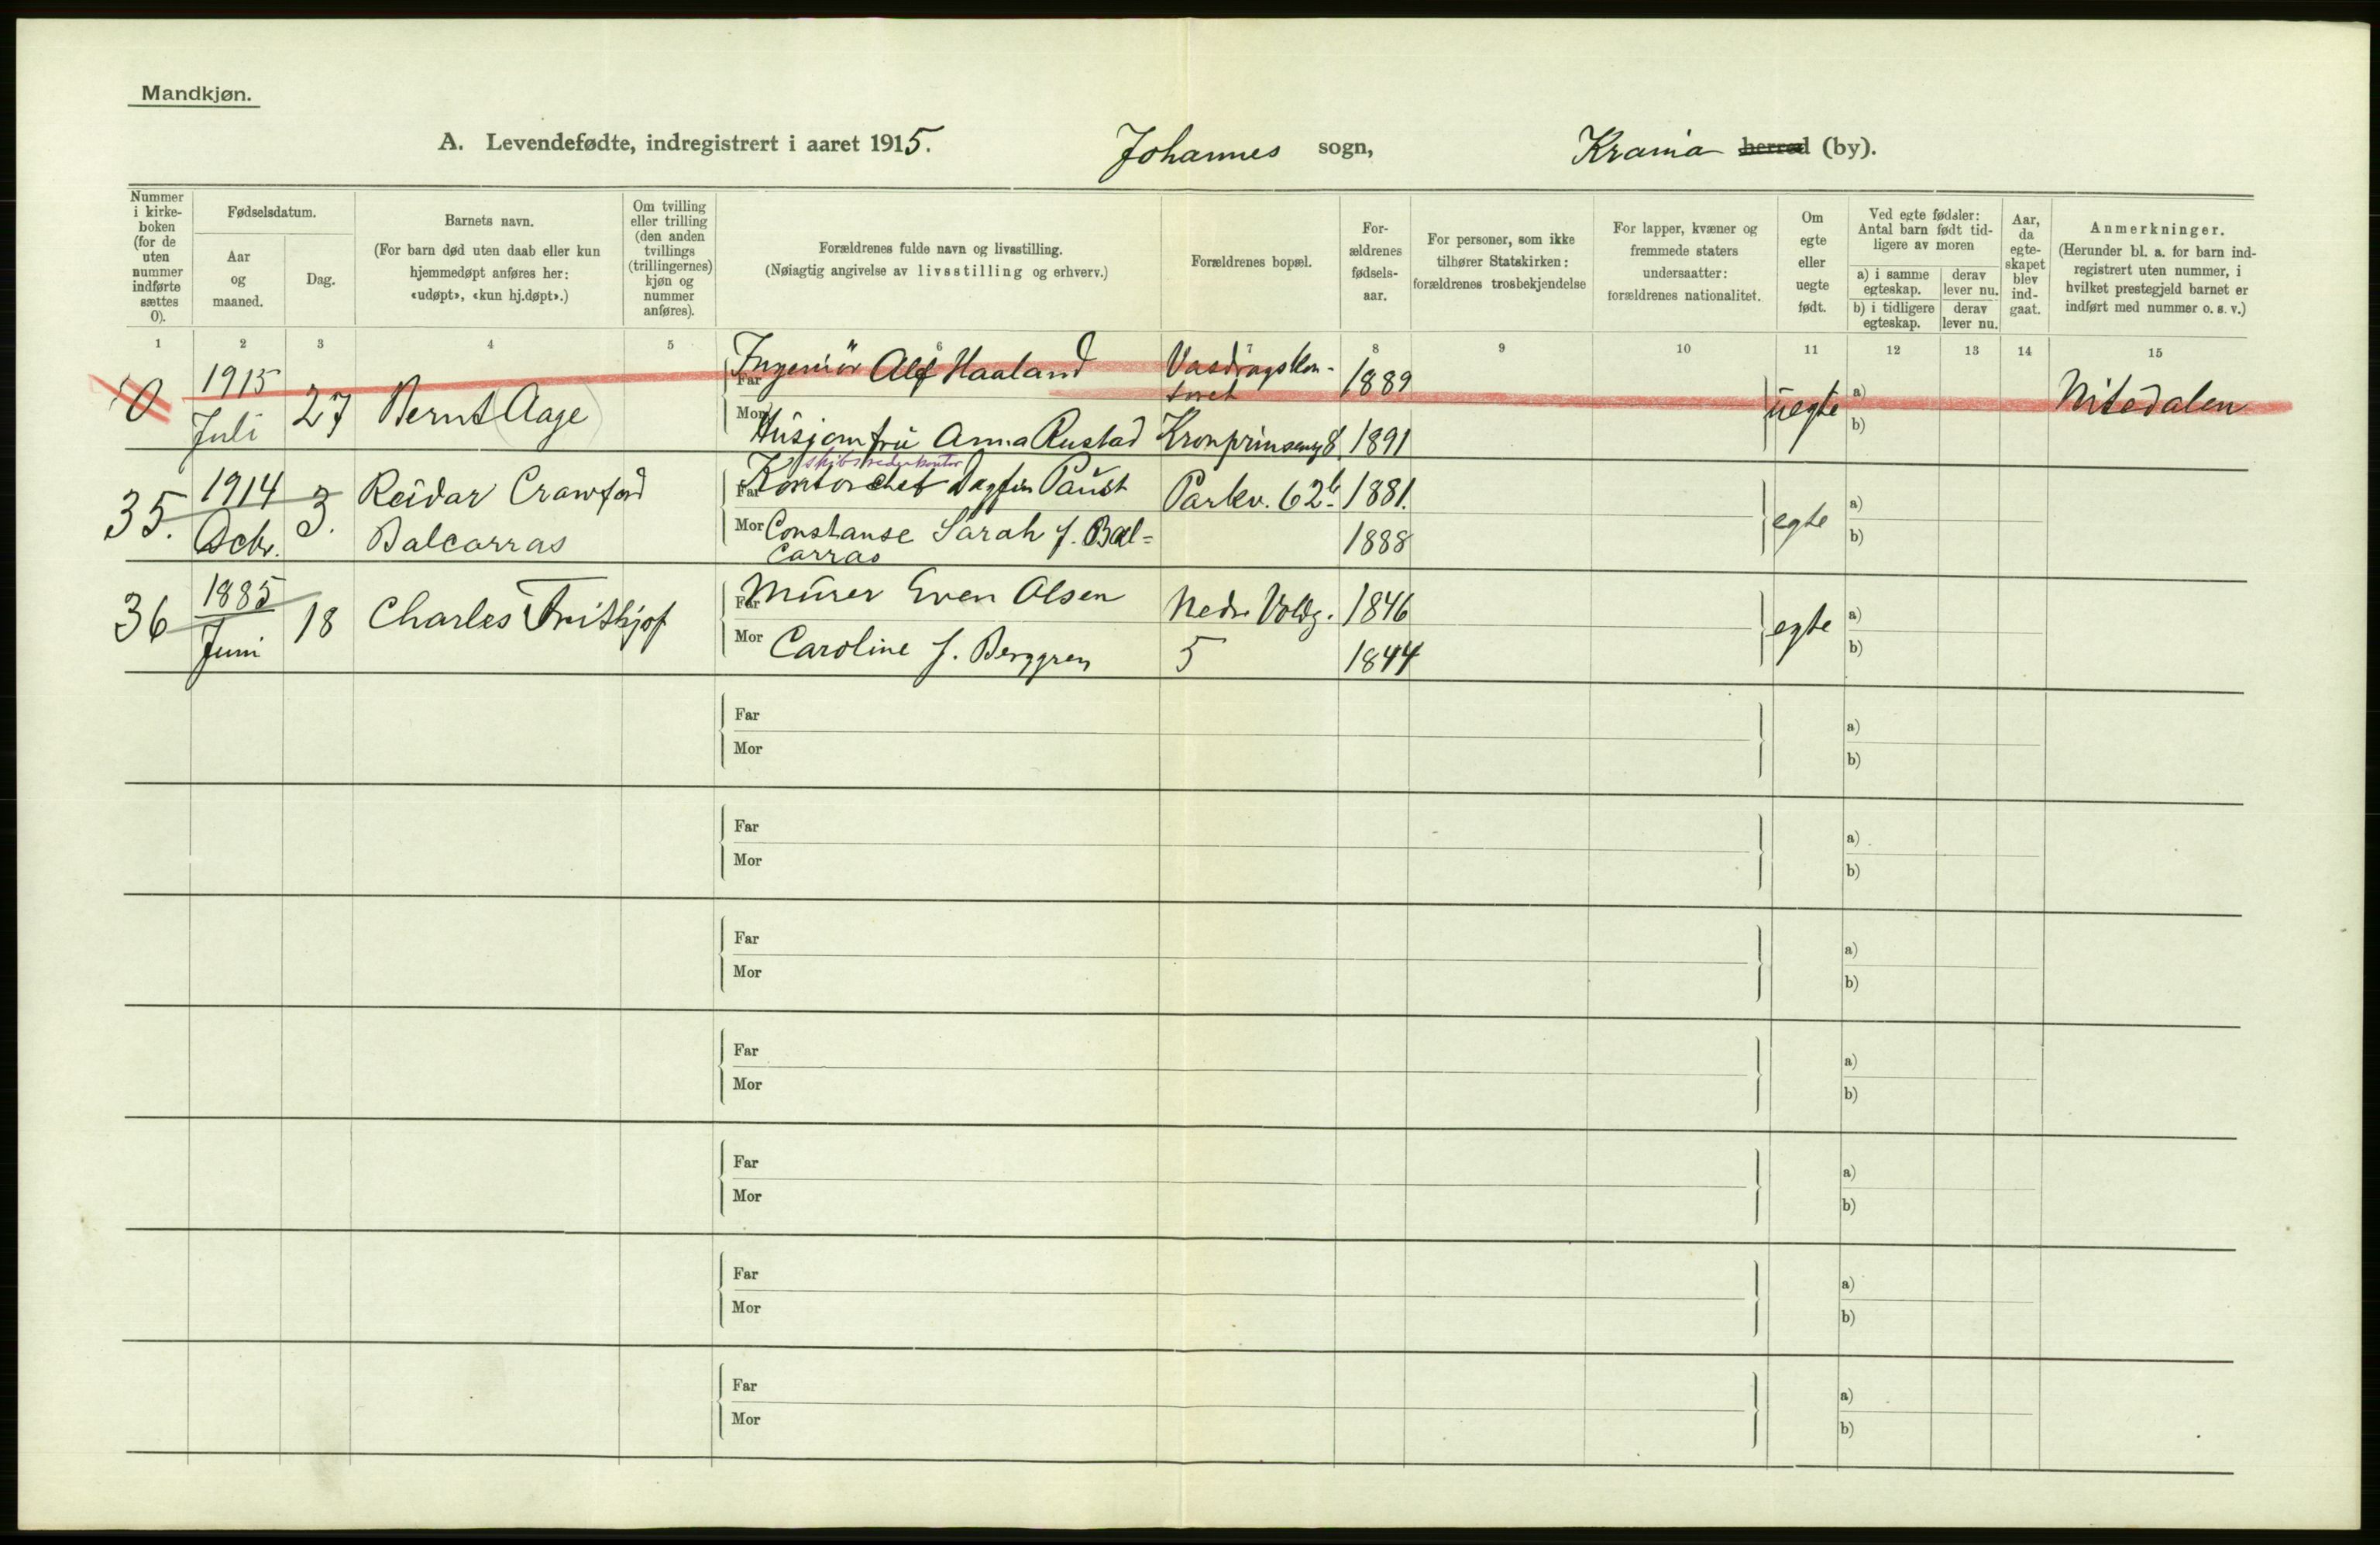 Mandkjøn.
A. Levendefødte, indregistrert i aaret 1915. Johannes sogn, Krania herred (by).
Nummer i kirke-boken (for de uten nummer indførte sættes 0).
Fødselsdatum.
Aar og maaned.
Dag.
Barnets navn.
(For barn død uten daab eller kun hjemmedøpt anføres her: «udøpt», «kun hj.døpt».)
Om tvilling eller trilling (den anden tvillings (trillingernes) kjøn og nummer anføres).
Forældrenes fulde navn og livsstilling.
(Nøiagtig angivelse av livsstilling og erhverv.)
Forældrenes bopæl.
For-ældrenes fødsels-aar.
For personer, som ikke tilhører Statskirken: forældrenes trosbekjendelse
For lapper, kvæner og fremmede staters undersaatter: forældrenes nationalitet.
Om egte eller uegte født.
Ved egte fødsler: Antal barn født tid-ligere av moren
a) i samme egteskap.
derav lever nu.
b) i tidligere egteskap.
derav lever nu.
Aar, da egte-skapet blev ind-gaat.
Anmerkninger.
(Herunder bl. a. for barn ind-registrert uten nummer, i hvilket prestegjeld barnet er indført med nummer o. s. v.)
1 2 3 4 5 6 7 8 9 10 11 12 13 14 15
0 1915 Juli 27 Bernt (Aage)
Far Ingeniör Alf Haaland Vasdragskon-toret 1889
Mor Husjomfru Anna Rustad Kronprinseng 8. 1891
uegte a) b) Nitedalen
35. 1914 Octr. 3. Reidar Crawford Balcarras
skibsrederkontor
Far Kontorchef Dagfin Paust Parkv. 62b 1881.
Mor Constanse Sarah f. Bal=carras 1888
egte a) b)
36 1885 Juni 18 Charles Frithjof
Far Murer Even Olsen Nedre Voldg. 5 1846
Mor Caroline f. Berggren 1844
egte a) b)
Far a)
Mor b)
Far a)
Mor b)
Far a)
Mor b)
Far a)
Mor b)
Far a)
Mor b)
Far a)
Mor b)
Far a)
Mor b)